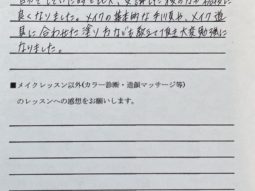 良くなりました。メイクの基本的な手順や、メイク道
具に合わせた塗り方などを教えて頂き大変勉強に
なりました。
■メイクレッスン以外(カラー診断・造顔マッサージ等)
のレッスンへの感想をお願いします。